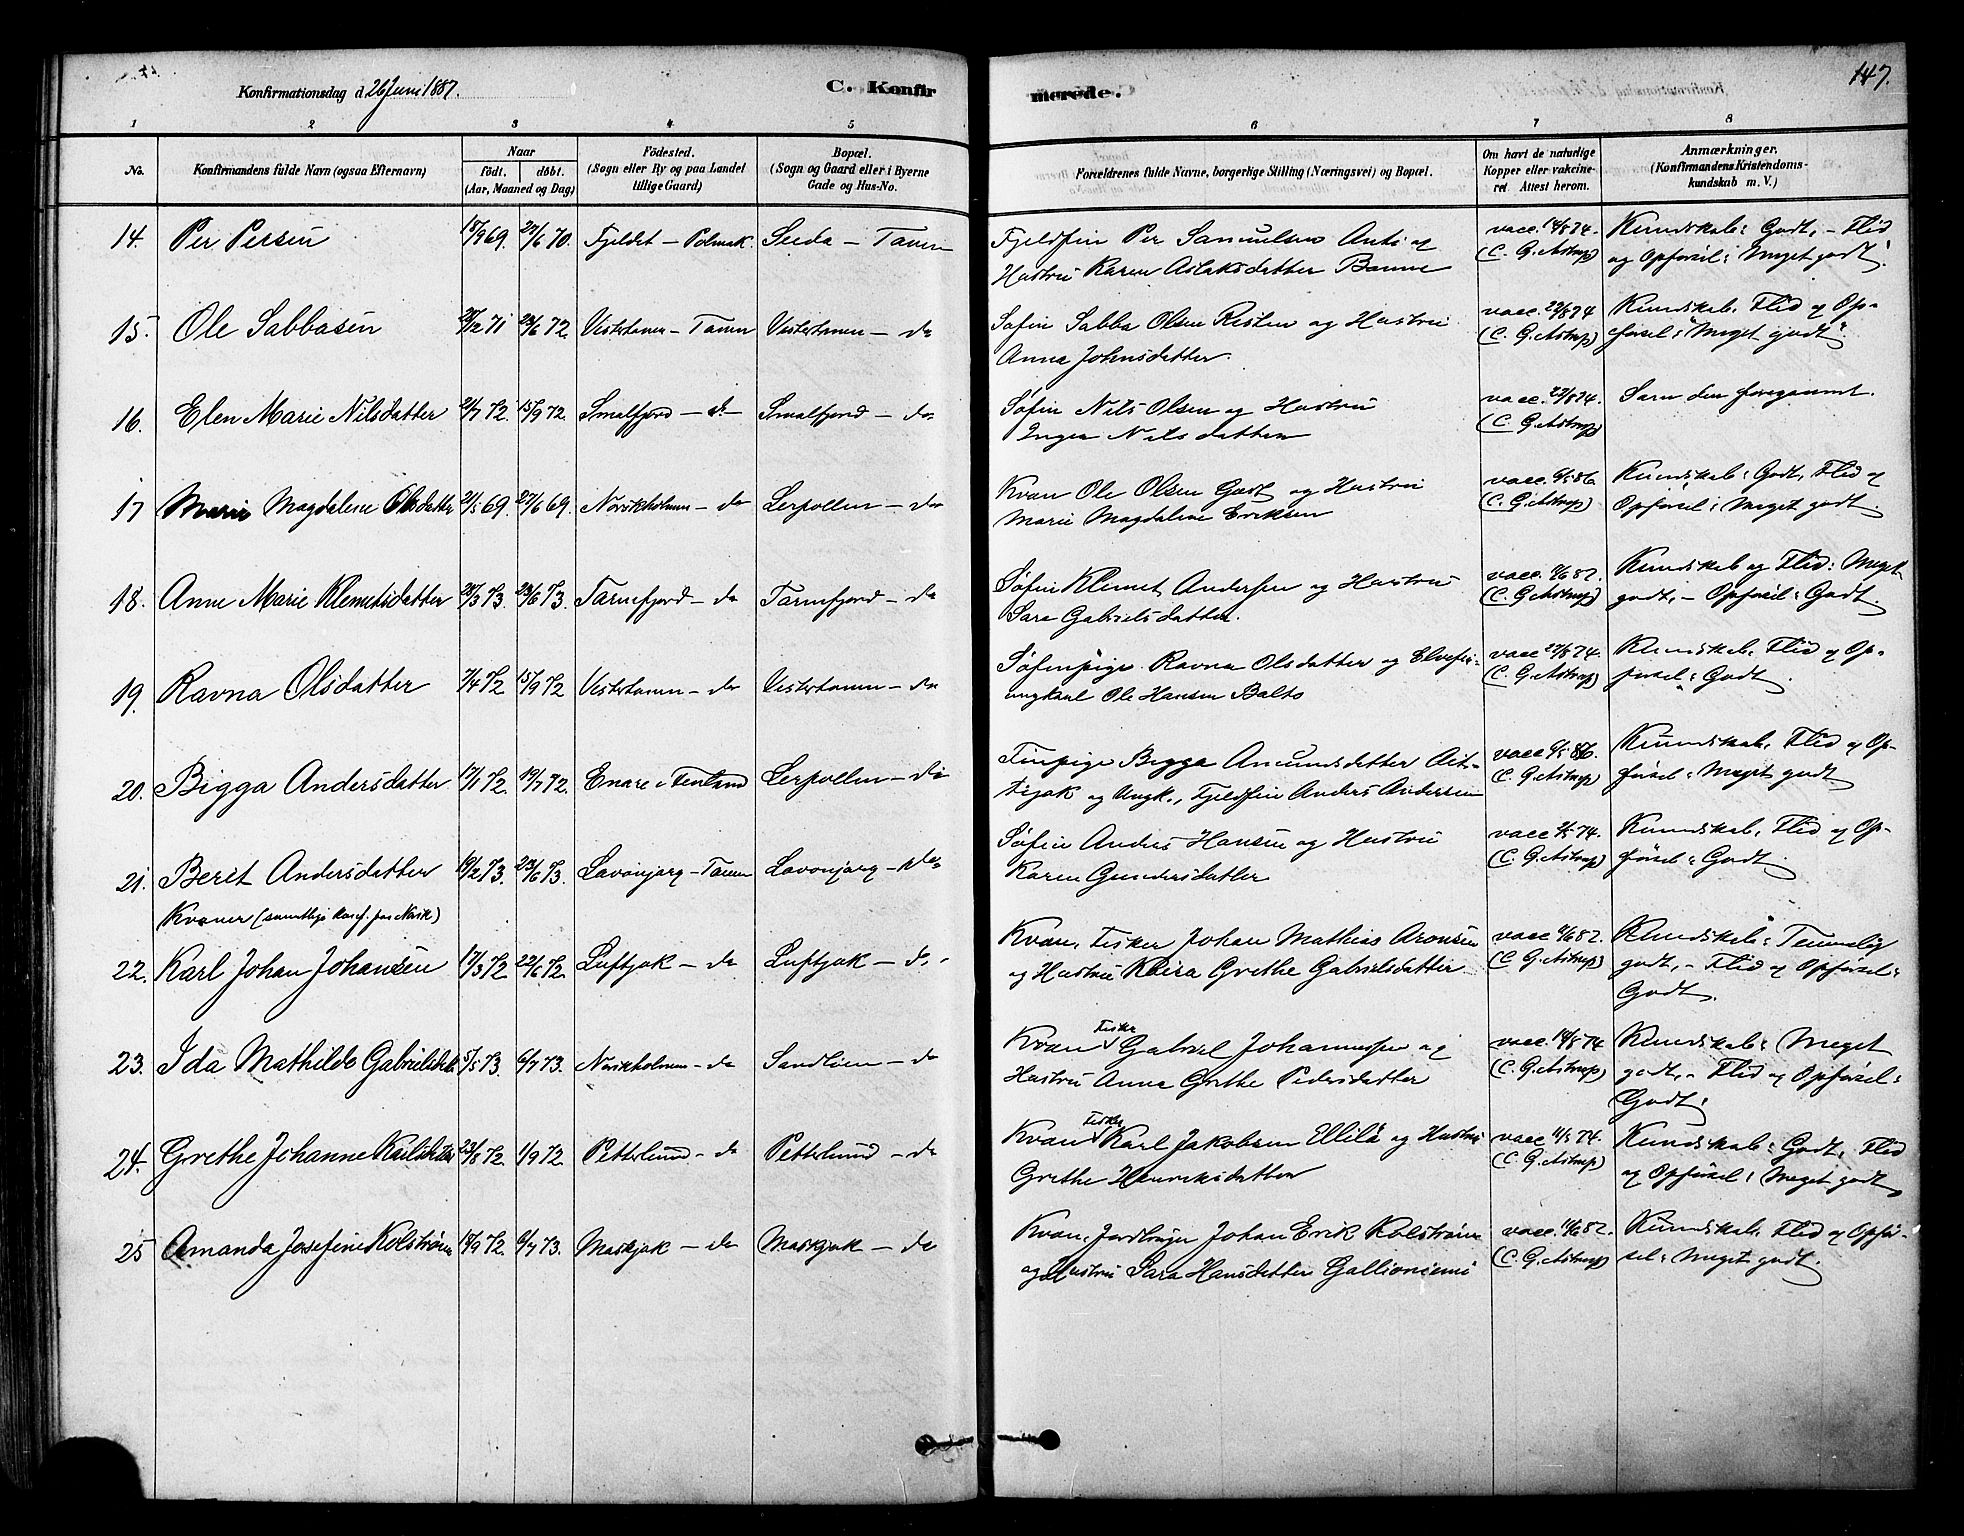 Konfirmationsdag d. 26 Juni 1887.
C. Konfirmerede.
147.
1 2 3 4 5 6 7 8
No.
Konfirmandens fulde Navn (ogsaa Efternavn)
Naar
födt. döbt.
(Aar, Maaned og Dag)
Födested.
(Sogn eller By og paa Landet
tillige Gaard)
Bopæl.
(Sogn og Gaard eller i Byerne
Gade og Hus-No.
Forældrenes fulde Navne, borgerlige Stilling (Næringsvei) og Bopæl.
Om havt de naturlige
Kopper eller vakcine-
ret. Attest herom.
Anmærkninger.
(Konfirmandens Kristendoms-
kundskab m. V.)
14. Per Persen 18/9 69. 22/6 70. Fjeldet – Polmak Seida – Tanen
Fjeldfin Per Samuelsen Anti og
Hustru Karen Aslaksdatter Banne
vacc. 14/8 74.
(C. G. Astrup)
Kundskab: Godt, – Flid
og Opförsel: Meget godt.
15. Ole Sabbasen 71 23/6 72. Vestertanen – Tanen Vestertanen – do
Söfin Sabba Olsen Risten og Hustru
Anna Johnsdatter.
vacc. 22/8 74
(C. G. Astrup)
Kundskab, Flid og Op-
førsel: Meget godt.
16. Elen Marie Nilsdatter 21/7 72. 15/9 72. Smalfjord – do Smalfjord – do
Söfin Nils Olsen og Hustru
Inger Nilsdatter
vacc. 22/8 74.
(C. G. Astrup)
Som den foregaaende.
17 Marie Magdalene Olsdatter 21/5 69. 27/6 69. Norskholmen – do Lerpollen – do
Kvæn Ole Olsen Gast og Hustru
Marie Magdalene Eriksen
vacc. 6/5 86
(C. G. Astrup)
Kundskab: Godt, Flid og
Opförsel: Meget godt.
18. Anne Marie Klemetsdatter 28/3 73. 23/6 73. Tarmfjord – do Tarmfjord – do
Söfin Klemet Andersen og Hustru
Sara Gabrielsdatter.
vacc. 82.
(C. G. Astrup)
Kundskab og Flid: Meget
godt, – Opförsel: Godt.
19. Ravna Olsdatter 7/4 72 15/9 72 Vestertanen – do Vestertanen – do
Söfinpige Ravna Olsdatter og Elvefin-
ungkarl Ole Hansen Balto
vacc 22/8 74.
(C. G. Astrup)
Kundskab, Flid og Op-
försel: Godt.
20. Bigga Andersdatter 17/1 72 19/7 72 Enare i Finland Lerpollen – do
Finpige Bigga Amundsdatter Ait-
tijok og Ungk., Fjeldfin Anders Andersen
vacc 6/5 86.
(C. G. Astrup)
Kundskab, Flid og Op-
försel: Meget godt
21. Berit Andersdatter 19/2 73. 23/6 73. Lavonjarg – Tanen Lavonjarg – do
Söfin Anders Hansen og Hustru
Karen Gundersdatter
vacc 74.
(C. G. Astrup)
Kundskab, Flid og Op-
försel: Godt.
Kvæner (samtlige konf. paa Norsk)
22. Karl Johan Johansen 17/3 72 22/6 72 Luftjok – do Luftjok – do
Kvæn, Fisker Johan Mathias Aronsen
og Hustru Kaisa Grethe Gabrielsdatter
vacc 82.
(C. G. Astrup)
Kundskab: Temmelig
godt, – Flid og Opförsel:
Godt.
23. Ida Mathilde Gabrielsdtr 5/5 73. 6/7 73. Norskholmen – do – do
Kvæn Fisker Gabriel Johannessen og
Hustru Anna Grethe Pedersdatter
vacc. 14/8 74
(C. G. Astrup)
Kundskab: Meget
godt, – Flid og Opförsel:
Godt.
24. Grethe Johanne Karlsdatter 23/8 72 1/9 72. Petterlund – do Petterlund – do
Kvæn Fisker Karl Jakobsen Ellilä og Hustru
Grethe Henriksdatter
vacc 74.
(C. G. Astrup)
Kundskab: Godt. Flid
og Opförsel: Meget godt
25 Amanda Josefine Kolström 14/9 72 6/7 73. Maskjok – do Maskjok – do
Kvæn, Jordbruger Johan Erik Kolström
og Hustru Sara Hansdatter Gallioniemi
vacc. 82.
(C. G. Astrup)
Kundskab, Flid og Opför-
sel: Meget godt.